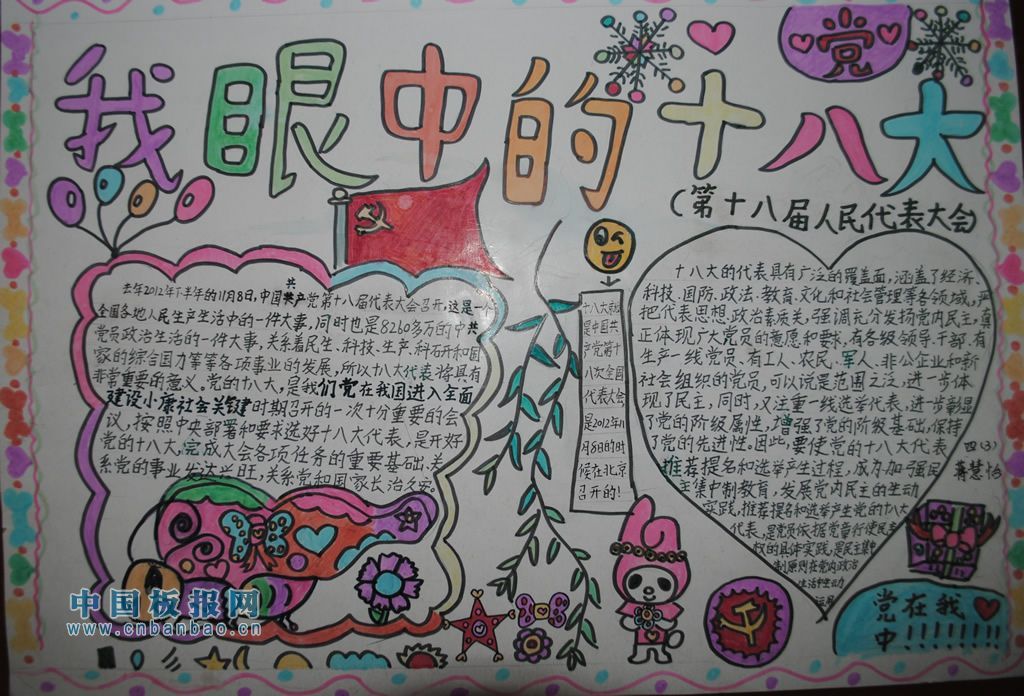 党
我眼中的十八大
(第十八届人民代表大会)
共
去年2012年下半年的11月8日,中国共产党第十八届代表大会召开,这是一个
全国各地人民生产生活中的一件大事,同时也是8260多万的中共
党员政治生活的一件大事,关系着民生、科技、生产、科石开和国
家的综合国力等等各项事业的发展,所以十八大代表将具有
非常重要的意义。党的十八大,是我们党在我国进入全面
建设小康社会关键时期召开的一次十分重要的会
议,按照中央部署和要求选好十八大代表,是开好
党的十八大,完成大会各项任务的重要基础,关
系党的事业发达兴旺,关系党和国家长治久安。
十八大就
是中国共
产党第十
八次全国
代表大会
是2012年11
月8日的时
候在北京
召开的!
十八大的代表具有广泛的覆盖面,涵盖了经济、
科技、国防、政法、教育、文化和社会管理等各领域,严
把代表思想、政治素质关,强调充分发扬党内民主,真
正体现广大党员的意愿和要求,有各级领导干部,有
生产一线党员,有工人、农民、军人、非公企业和新
社会组织的党员,可以说是范围之泛,进一步体
现了民主,同时,又注重一线选举代表,进步彰显
了党的阶级属性,增强了党的阶级基础,保持
了党的先进性。因此,要使党的十八大代表
推荐提名和选举产生过程,成为加强民
主集中制教育,发展党内民主的生动
实践,推荐提名和选举产生党的十八大
代表,是党员依据党章行使民主
权的具体实践,是民主集中
制原则在党内政治
生活中生动
运用
四(3)
蒋慧怡
党在我
中!!!!!!!!
中国板报网
www.cnbanbao.cn